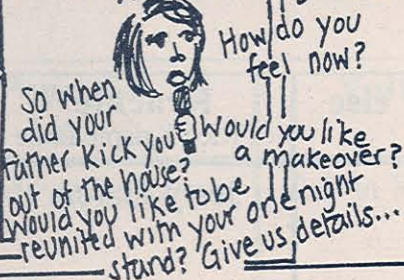 How do you
feel now?
So when
did your
father kick you
out of the house?
Would you like
a makeover?
Would you like to be
reunited with your one night
stand? Give us details...